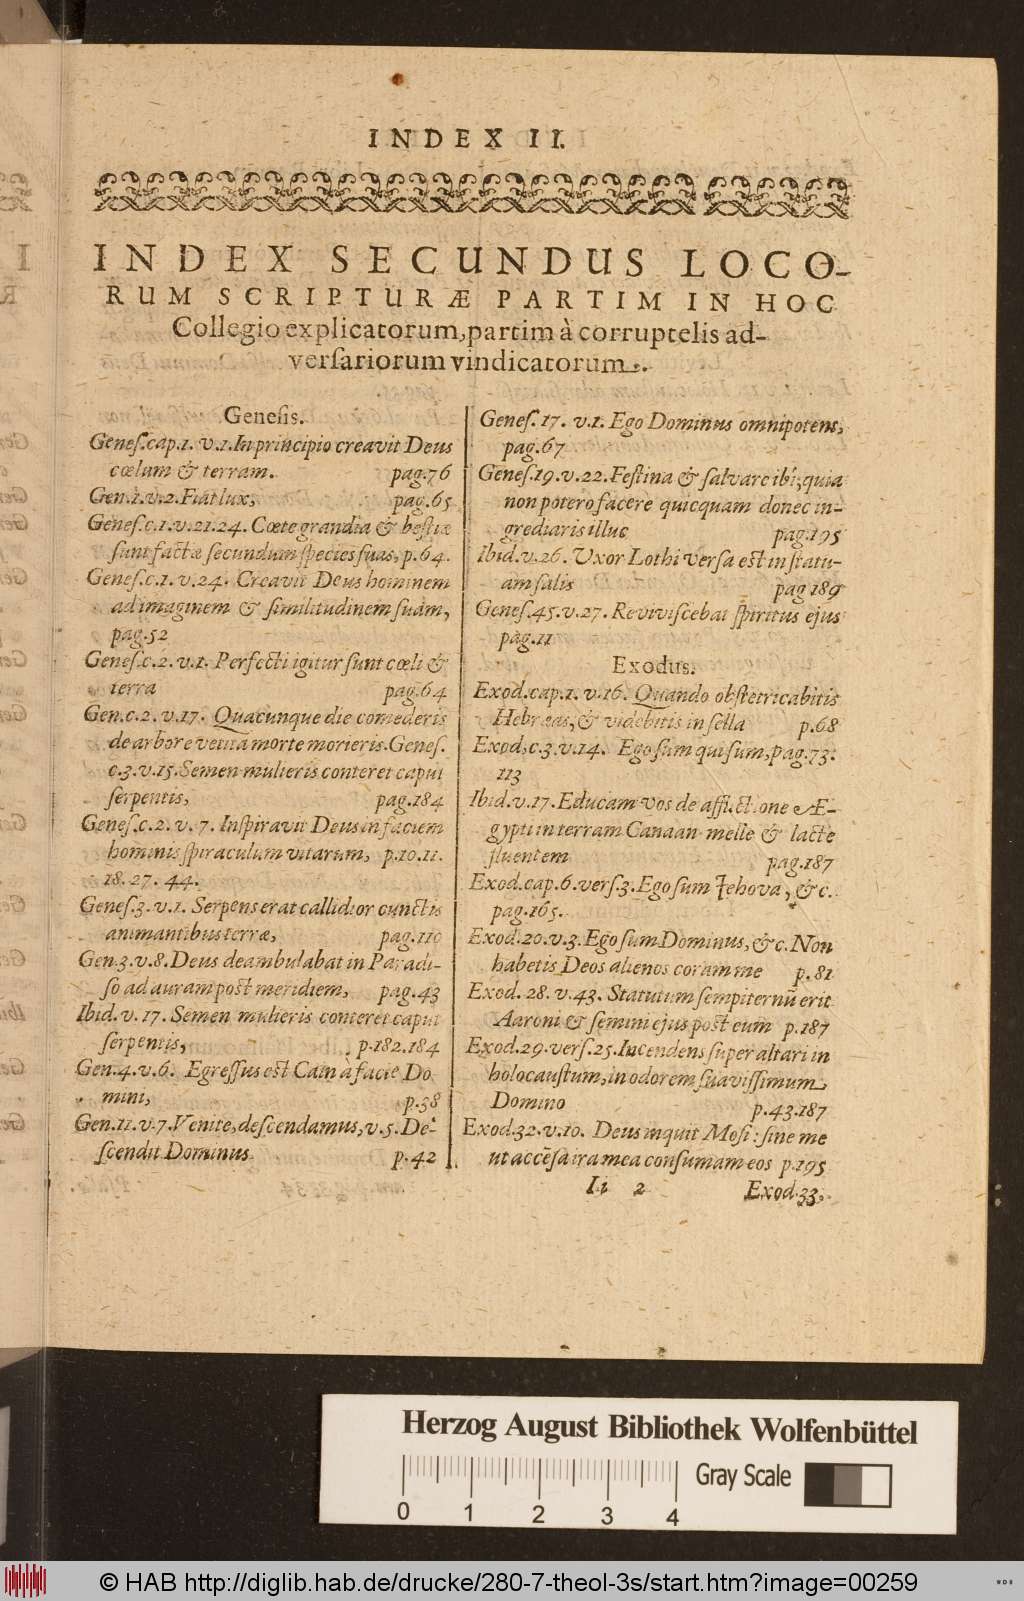 INDEX II.
INDEX SECUNDUS LOCO-
RUM SCRIPTURÆ PARTIM IN HOC
Collegio explicatorum, partim à corruptelis ad-
versariorum vindicatorum.
Genesis.
Genes. cap. 1. v. 1. In principio creavit Deus
cœlum & terram. pag. 76
Gen. 1. v. 2. Fiat lux, pag. 65
Genes. c. 1. v. 21. 24. Cœte grandia & bestiæ
sunt factæ secundum species suas, p. 64.
Genes. c. 1. v. 24. Creavit Deus hominem
ad imaginem & similitudinem suam,
pag. 52
Genes. c. 2. v. 1. Perfecti igitur sunt cœli &
terra pag. 64
Gen. c. 2. v. 17. Quacunque die comederis
de arbore vetita morte morieris. Genes.
c. 3. v. 15. Semen mulieris conteret caput
serpentis, pag. 184
Genes. c. 2. v. 7. Inspiravit Deus in faciem
hominis spiraculum vitarum, p. 10. 11.
18. 27. 44.
Genes. 3. v. 1. Serpens erat callidior cunctis
animantibus terræ, pag. 110
Gen. 3. v. 8. Deus deambulabat in Paradi-
so ad auram post meridiem, pag. 43
Ibid. v. 17. Semen mulieris conteret caput
serpentis, p. 182. 184
Gen. 4. v. 6. Egressus est Cain à facie Do
mini, p. 38
Gen. 11. v. 7. Venite, descendamus, v. 5. De-
scendit Dominus p. 42
Genes. 17. v. 1. Ego Dominus omnipotens,
pag. 67
Genes. 19. v. 22. Festina & salvare ibi, quia
non potero facere quicquam donec in-
grediaris illuc pag. 195
Ibid. v. 26. Uxor Lothi versa est in statu-
am salis pag 189
Genes. 45. v. 27. Reviviscebat spiritus ejus
pag. 11
Exodus.
Exod. cap. 1. v. 16. Quando obstetricabitis
Hebræas, & videbitis in sella p. 68
Exod. c. 3. v. 14. Ego sum qui sum, pag. 73.
113
Ibid. v. 17. Educam vos de afflictione Æ-
gypti in terram Canaan melle & lacte
fluentem pag. 187
Exod. cap. 6. vers. 3. Ego sum Jehova, &c.
pag. 165.
Exod. 20. v. 3. Ego sum Dominus, &c. Non
habetis Deos alienos coram me p. 81
Exod. 28. v. 43. Statutum sempiternũ erit
Aaroni & semini ejus post eum p. 187
Exod. 29. vers. 25. Incendens super altari in
holocaustum, in odorem suavissimum
Domino p. 43. 187
Exod. 32. v. 10. Deus inquit Mosi: sine me
ut accẽsa ira mea consumam eos p. 195
Ii 2 Exod. 33,
Herzog August Bibliothek Wolfenbüttel
Gray Scale
0 1 2 3 4
© HAB http://diglib.hab.de/drucke/280-7-theol-3s/start.htm?image=00259